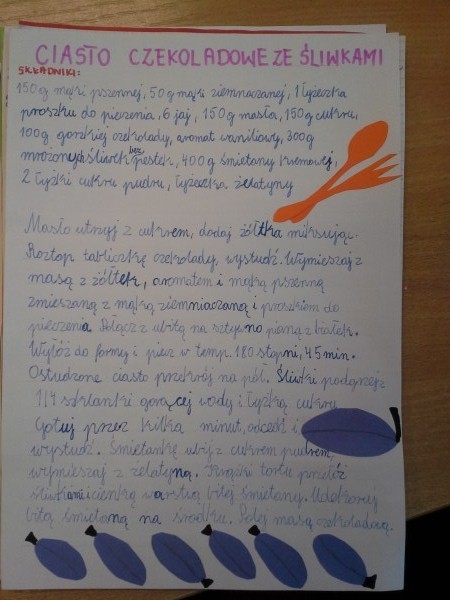 CIASTO CZEKOLADOWE ZE ŚLIWKAMI
SKŁADNIKI:
150g mąki pszennej, 50g mąki ziemniaczanej, 1 łyżeczka
proszku do pieczenia, 6 jaj, 150g masła, 150g cukru,
100g gorzkiej czekolady, aromat waniliowy, 300g
mrożonych śliwek bez pestek, 400g śmietany kremowej,
2 łyżki cukru pudru, łyżeczka żelatyny
Masło utrzyj z cukrem, dodaj żółtka miksując.
Roztop tabliczkę czekolady, wystudź. Wymieszaj z
masą z żółtek, aromatem i mąką pszenną
zmieszaną z mąką ziemniaczaną i proszkiem do
pieczenia. Połącz z ubitą na sztywno pianą z białek.
Wyłóż do formy i piecz w temp. 180 stopni, 45 min.
Ostudzone ciasto przekrój na pół. Śliwki podgrzej z
1/4 szklanki gorącej wody i łyżką cukru
Gotuj przez kilka minut, odcedź i
wystudź. Śmietankę ubij z cukrem pudrem,
wymieszaj z żelatyną. Krążki tortu przełóż
śliwkami i cienką warstwą bitej śmietany. Udekoruj
bitą śmietaną na środku. Polej masą czekoladową.